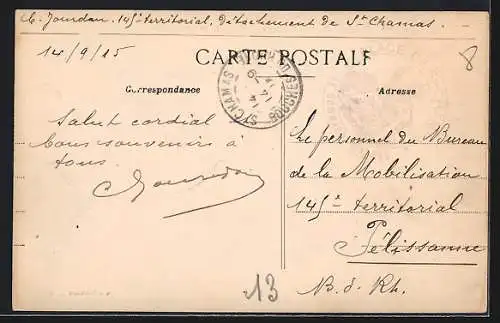 C. Jourdan. 145e territorial, détachement de St Chamas.
14/9/15
8
CARTE POSTALE
Correspondance
Adresse
ST CHAMAS
BOUCHES DU RHONE
Salut cordial
bons souvenirs à
tous.
CJourdan
Le personnel du Bureau
de la Mobilisation
145e territorial
Pélissanne
B. d. Rh.
13